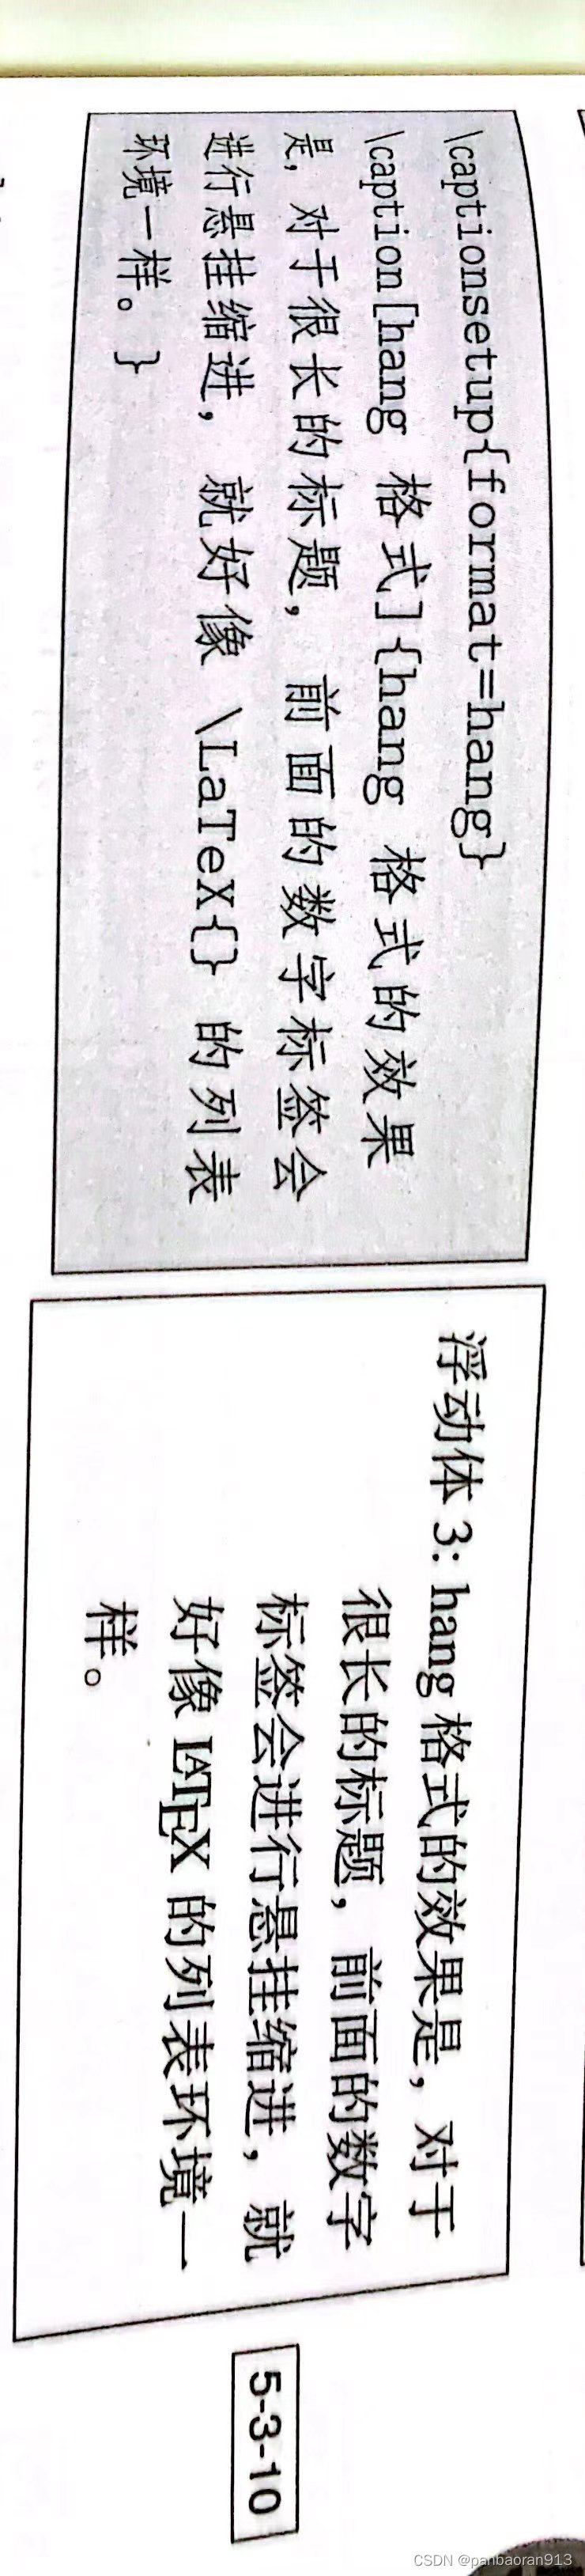 \captionsetup{format=hang}
\caption[hang 格式]{hang 格式的效果
是，对于很长的标题，前面的数字标签会
进行悬挂缩进，就好像 \LaTeX{} 的列表
环境一样。}
浮动体 3: hang 格式的效果是，对于
很长的标题，前面的数字
标签会进行悬挂缩进，就
好像 LATEX 的列表环境一
样。
5-3-10
CSDN @panbaoran913